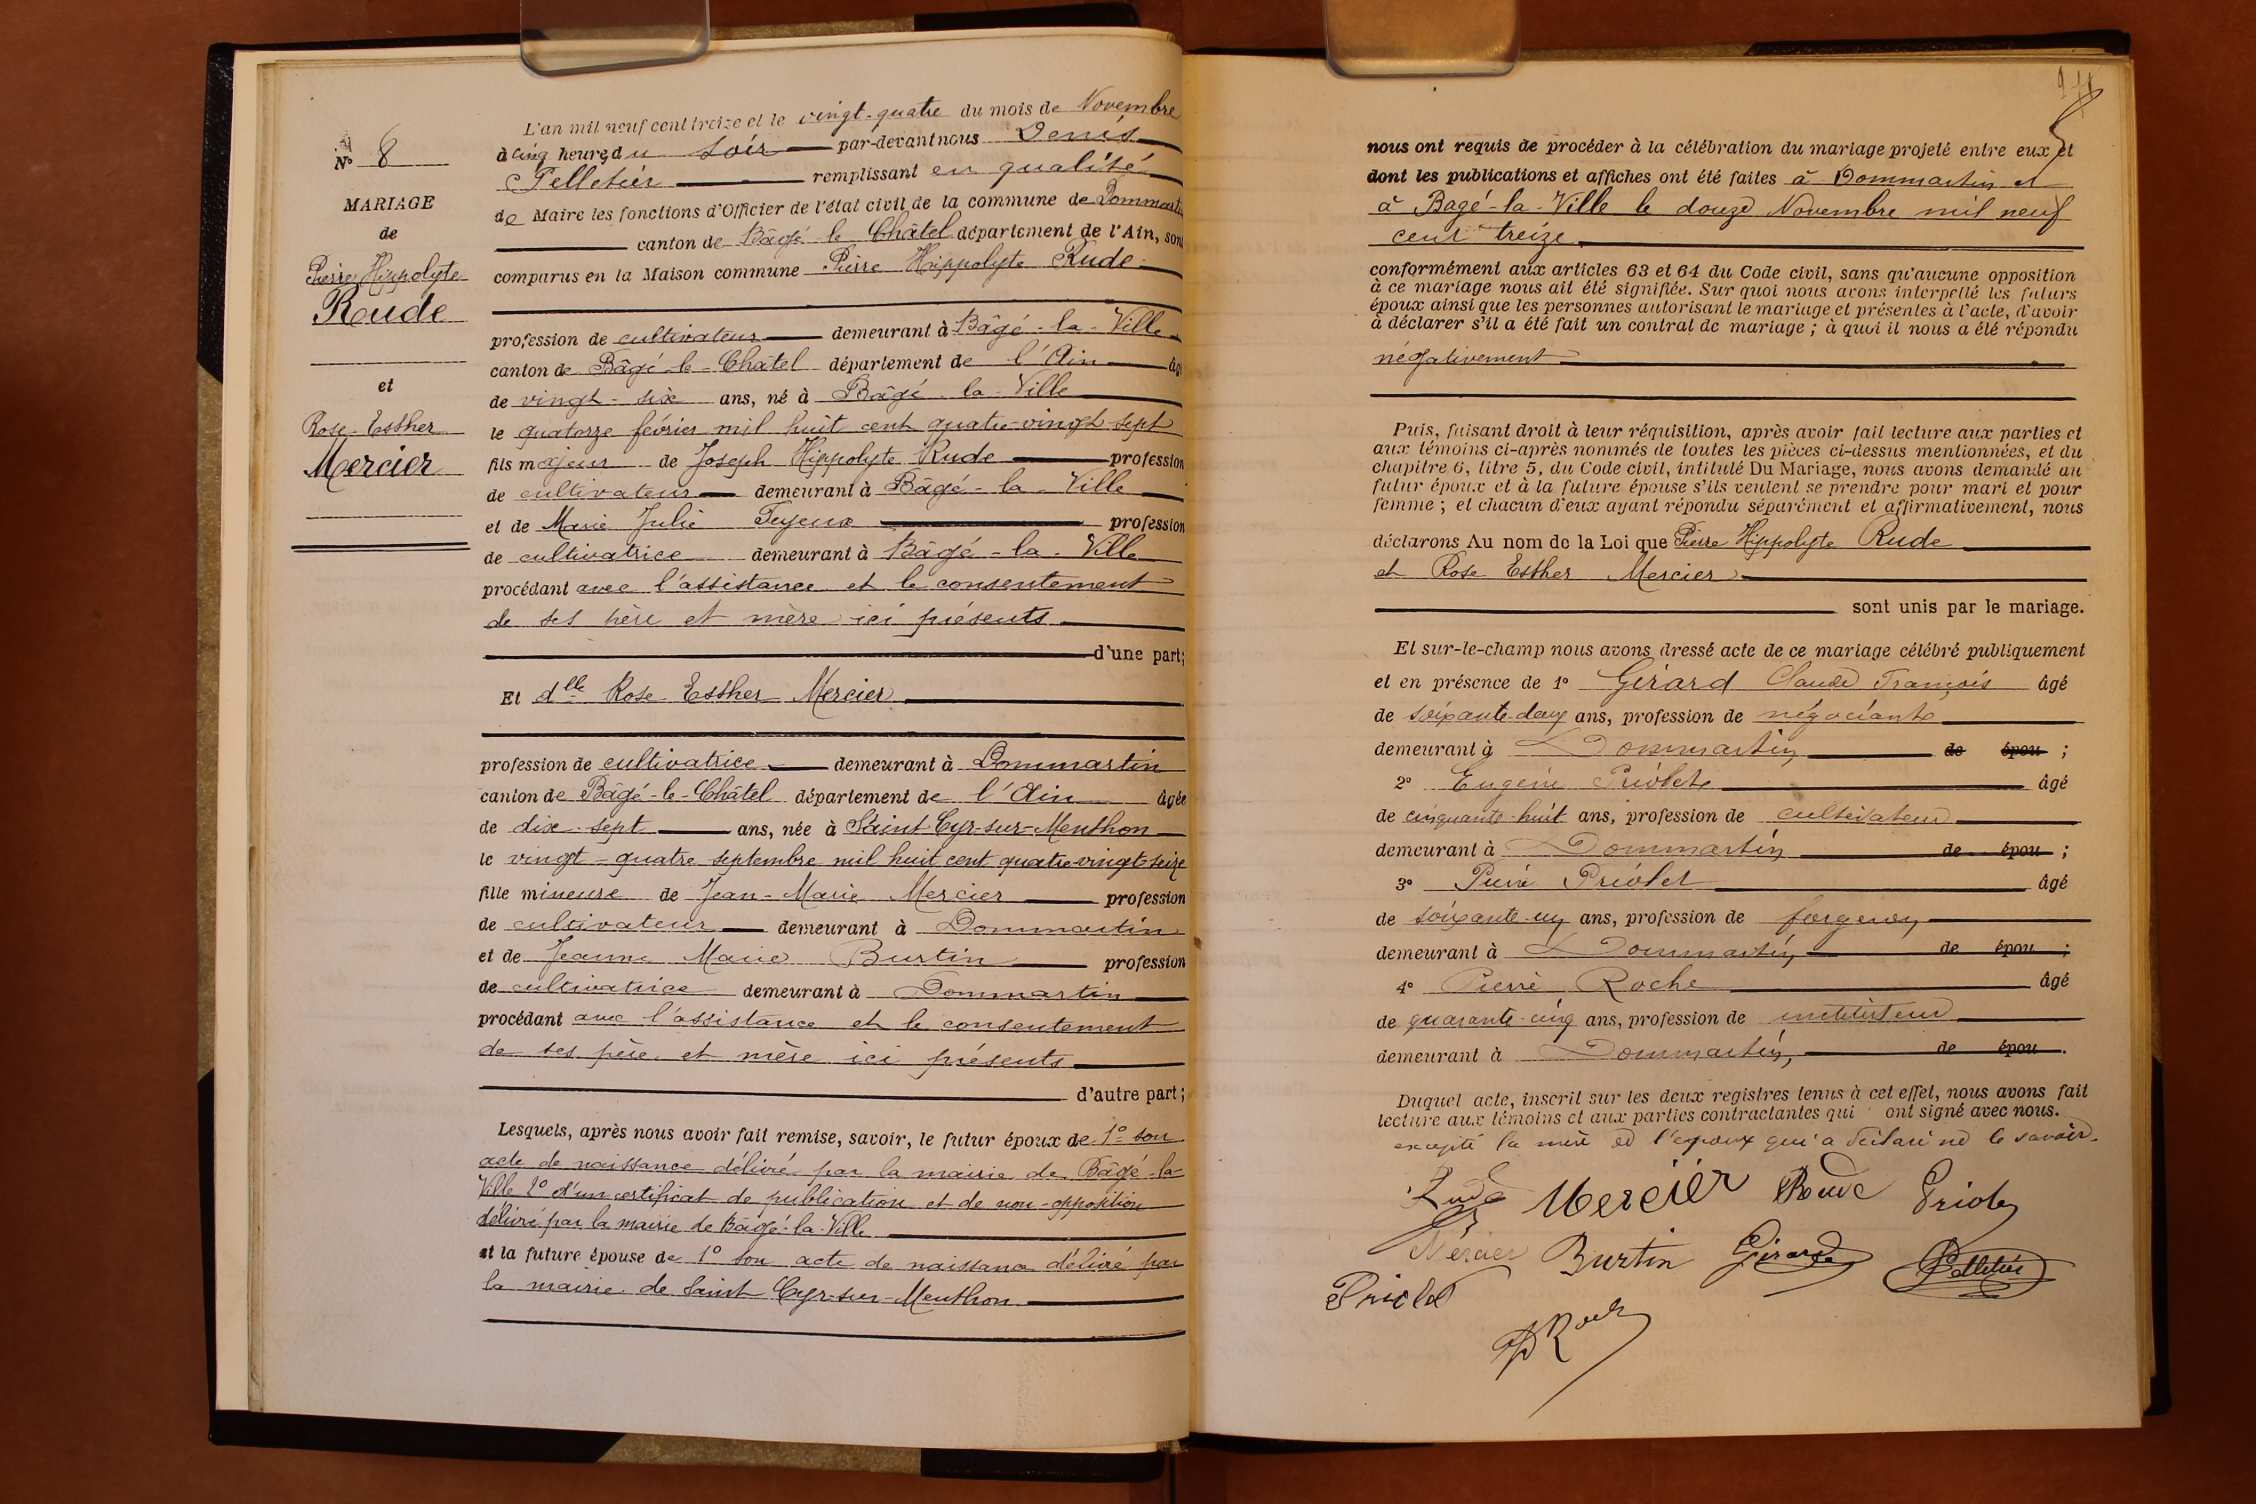 N° 8
MARIAGE
de
Pierre Hippolyte
Rude
et
Rose Esther
Mercier
L'an mil neuf cent treize et le vingt-quatre du mois de Novembre
à cinq heures du soir par-devant nous Denis
Pelletier remplissant en qualité
de Maire les fonctions d'Officier de l'état civil de la commune de Dommartin
canton de Bâgé-le-Châtel département de l'Ain, sont
comparus en la Maison commune Pierre Hippolyte Rude
profession de cultivateur demeurant à Bâgé-la-Ville
canton de Bâgé-le-Châtel département de l'Ain âgé
de vingt-six ans, né à Bâgé-la-Ville
le quatorze février mil huit cent quatre-vingt-sept
fils majeur de Joseph Hippolyte Rude profession
de cultivateur demeurant à Bâgé-la-Ville
et de Marie Julie Feyeux profession
de cultivatrice demeurant à Bâgé-la-Ville
procédant avec l'assistance et le consentement
de ses père et mère ici présents
d'une part;
Et dlle Rose Esther Mercier
profession de cultivatrice demeurant à Dommartin
canton de Bâgé-le-Châtel département de l'Ain âgée
de dix-sept ans, née à Saint Cyr-sur-Menthon
le vingt-quatre septembre mil huit cent quatre-vingt-seize
fille mineure de Jean-Marie Mercier profession
de cultivateur demeurant à Dommartin
et de Jeanne Marie Burtin profession
de cultivatrice demeurant à Dommartin
procédant avec l'assistance et le consentement
de ses père et mère ici présents
d'autre part;
Lesquels, après nous avoir fait remise, savoir, le futur époux de 1° son
acte de naissance délivré par la mairie de Bâgé-la-
Ville 2° d'un certificat de publication et de non-opposition
délivré par la mairie de Bâgé-la-Ville
et la future épouse de 1° son acte de naissance délivré par
la mairie de Saint Cyr-sur-Menthon
nous ont requis de procéder à la célébration du mariage projeté entre eux et
dont les publications et affiches ont été faites à Dommartin et
à Bagé-la-Ville le douze Novembre mil neuf
cent treize
conformément aux articles 63 et 64 du Code civil, sans qu'aucune opposition
à ce mariage nous ait été signifiée. Sur quoi nous avons interpellé les futurs
époux ainsi que les personnes autorisant le mariage et présentes à l'acte, d'avoir
à déclarer s'il a été fait un contrat de mariage ; à quoi il nous a été répondu
négativement
Puis, faisant droit à leur réquisition, après avoir fait lecture aux parties et
aux témoins ci-après nommés de toutes les pièces ci-dessus mentionnées, et du
chapitre 6, titre 5, du Code civil, intitulé Du Mariage, nous avons demandé au
futur époux et à la future épouse s'ils veulent se prendre pour mari et pour
femme ; et chacun d'eux ayant répondu séparément et affirmativement, nous
déclarons Au nom de la Loi que Pierre Hippolyte Rude
et Rose Esther Mercier
sont unis par le mariage.
Et sur-le-champ nous avons dressé acte de ce mariage célébré publiquement
et en présence de 1° Gérard Claude François âgé
de soixante-deux ans, profession de négociant
demeurant à Dommartin de épou ;
2° Eugène Priolet âgé
de cinquante-huit ans, profession de cultivateur
demeurant à Dommartin de épou ;
3° Pierre Priolet âgé
de soixante-un ans, profession de forgeron
demeurant à Dommartin de épou ;
4° Pierre Roche âgé
de quarante-cinq ans, profession de instituteur
demeurant à Dommartin, de épou .
Duquel acte, inscrit sur les deux registres tenus à cet effet, nous avons fait
lecture aux témoins et aux parties contractantes qui ont signé avec nous.
excepté la mère de l'époux qui a déclaré ne le savoir.
Rude Mercier Rude Priolet
Mercier Burtin Gérard Pelletier
Priolet
P Roche